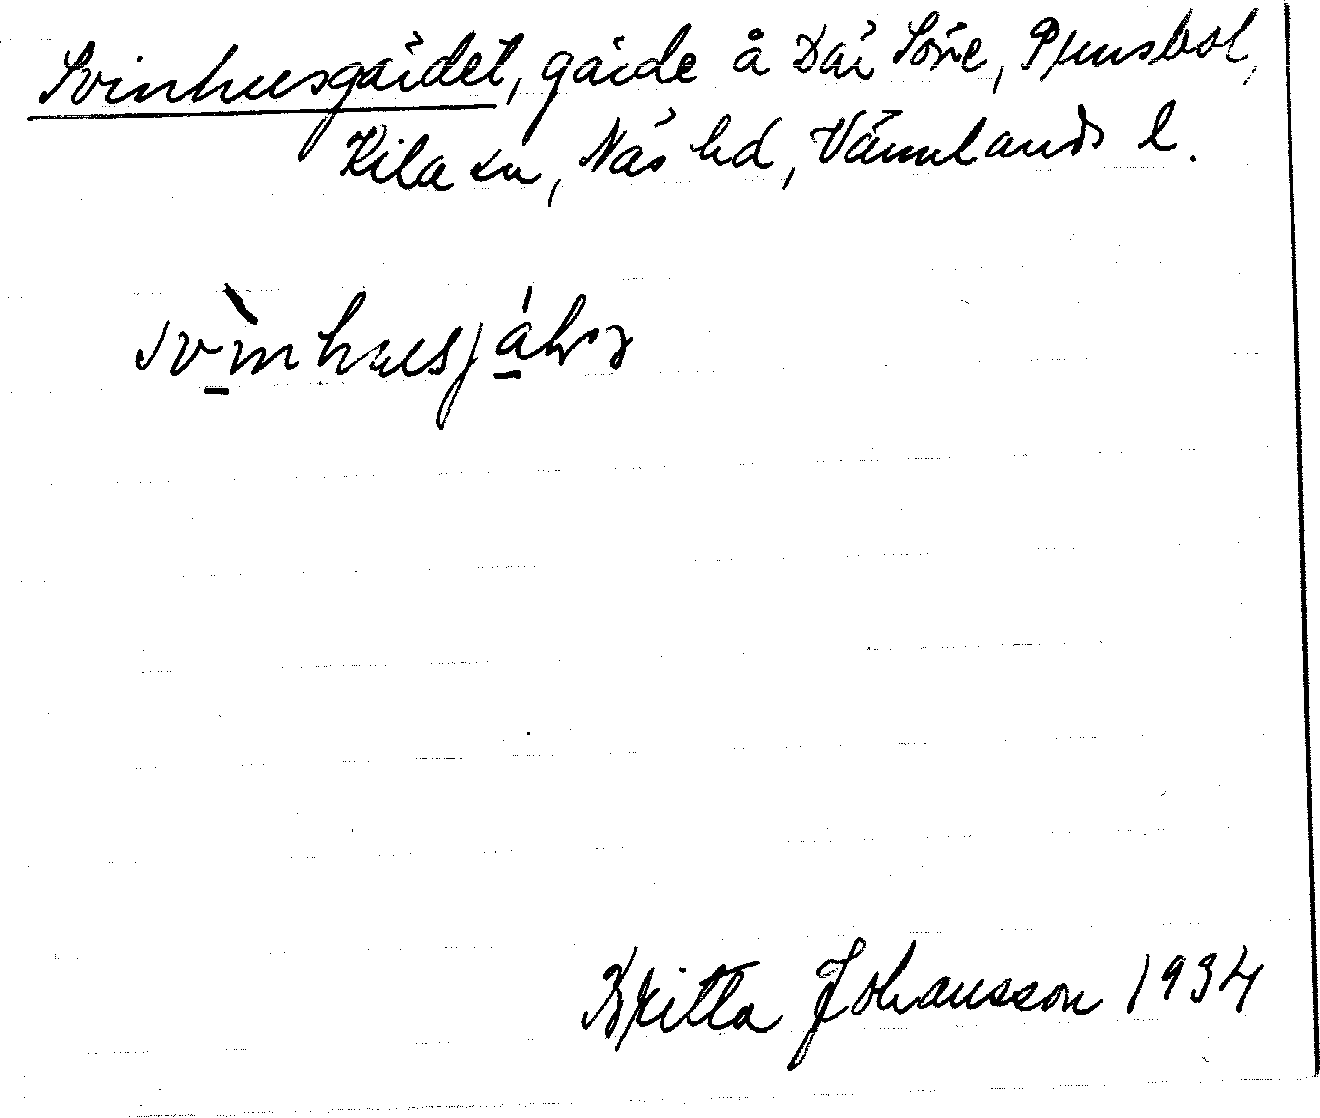 Svinhusgärdet, gärde å Där Söre, Pjunsbol,
Kila sn, Näs hd, Värmlands l.
Britta Johansson 1934